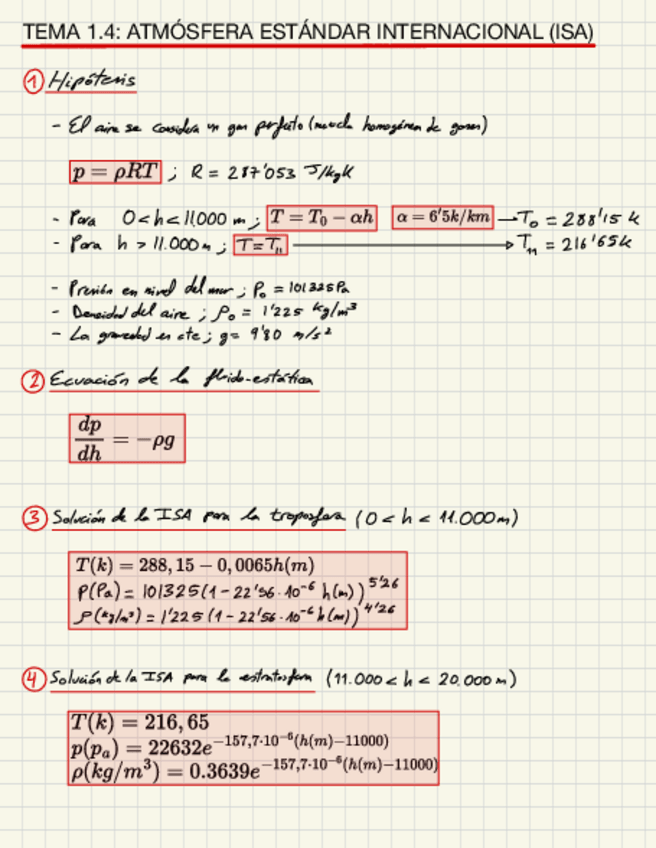 TEMA 1.4: ATMÓSFERA ESTÁNDAR INTERNACIONAL (ISA)
① Hipótesis
- El aire se considera un gas perfecto (mezcla homogénea de gases)
p = ρRT ; R = 287'053 J/kgK
- Para 0<h<11.000 m ; T = T₀ − αh α = 6'5k/km → T₀ = 288'15 k
- Para h > 11.000 m ; T = T₁₁ → T₁₁ = 216'65k
- Presión en nivel del mar ; P₀ = 101325Pa
- Densidad del aire ; ρ₀ = 1'225 kg/m³
- La gravedad es cte ; g = 9'80 m/s²
② Ecuación de la fluido-estática
dp/dh = −ρg
③ Solución de la ISA para la troposfera (0 < h < 11.000m)
T(k) = 288,15 − 0,0065h(m)
P(Pa) = 101325(1 - 22'56·10⁻⁶ h(m))^5'26
ρ(kg/m³) = 1'225 (1 - 22'56·10⁻⁶ h(m))^4'26
④ Solución de la ISA para la estratosfera (11.000 < h < 20.000m)
T(k) = 216,65
p(pₐ) = 22632e^−157,7·10⁻⁶(h(m)−11000)
ρ(kg/m³) = 0.3639e^−157,7·10⁻⁶(h(m)−11000)